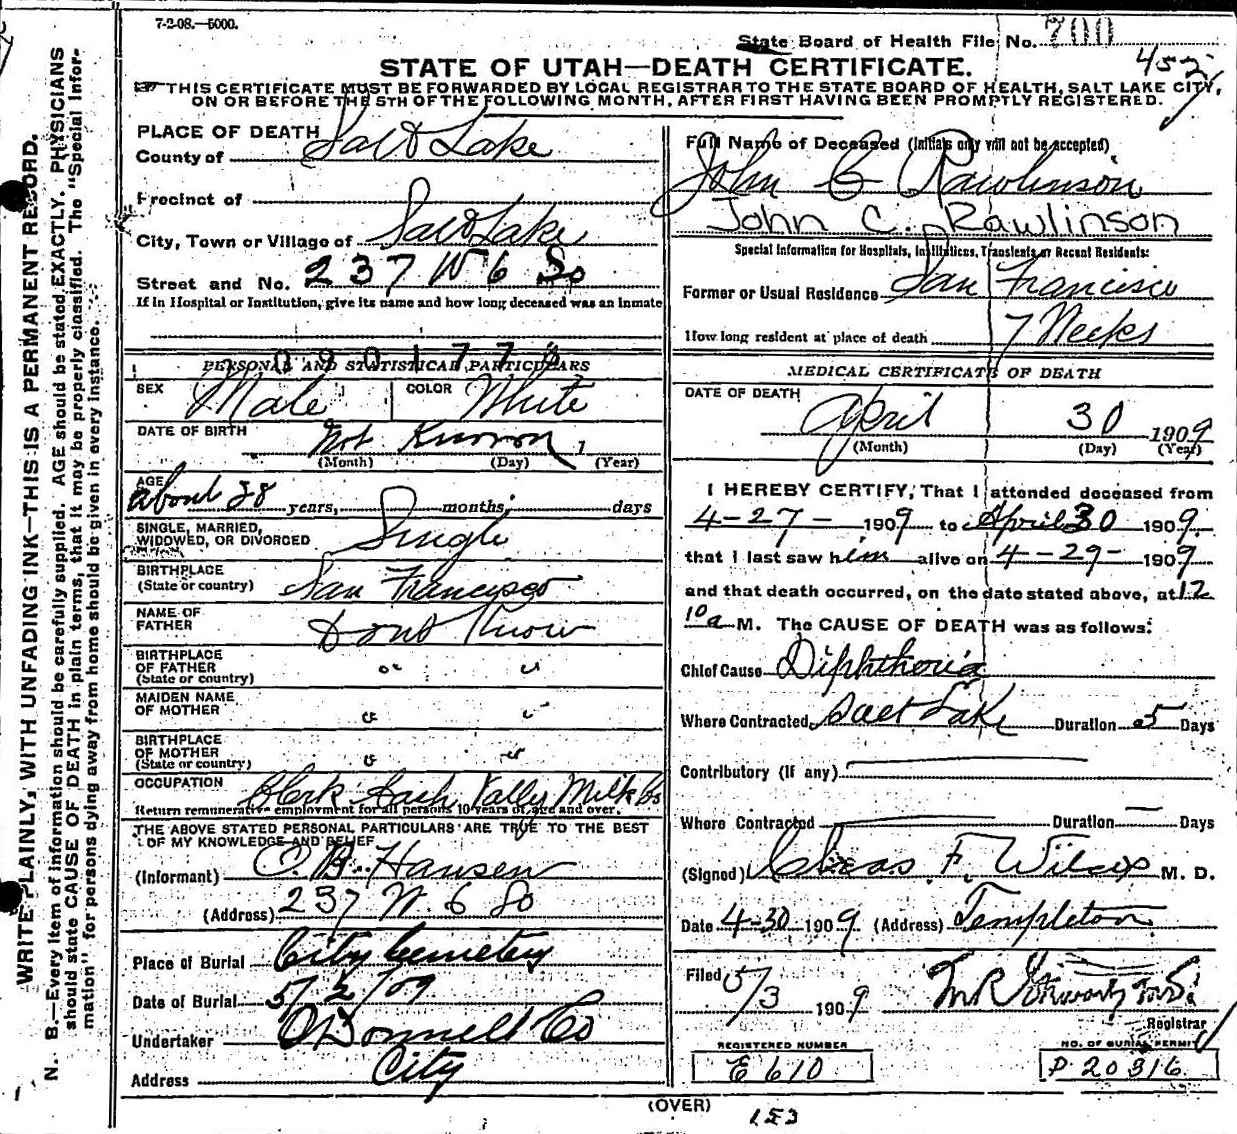 7-2-08.—5000.
State Board of Health File No. 700
452
STATE OF UTAH—DEATH CERTIFICATE.
THIS CERTIFICATE MUST BE FORWARDED BY LOCAL REGISTRAR TO THE STATE BOARD OF HEALTH, SALT LAKE CITY,
ON OR BEFORE THE 5TH OF THE FOLLOWING MONTH, AFTER FIRST HAVING BEEN PROMPTLY REGISTERED.
WRITE PLAINLY, WITH UNFADING INK—THIS IS A PERMANENT RECORD.
N. B.—Every item of information should be carefully supplied. AGE should be stated EXACTLY. PHYSICIANS
should state CAUSE OF DEATH in plain terms, that it may be properly classified. The "Special Infor-
mation" for persons dying away from home should be given in every instance.
PLACE OF DEATH
County of Salt Lake
Precinct of
City, Town or Village of Salt Lake
Street and No. 237 W 6 So
If in Hospital or Institution, give its name and how long deceased was an inmate
0901770
PERSONAL AND STATISTICAL PARTICULARS
SEX Male COLOR White
DATE OF BIRTH Not Known 1
(Month) (Day) (Year)
AGE
about 28 years, months, days
SINGLE, MARRIED,
WIDOWED, OR DIVORCED Single
BIRTHPLACE
(State or country) San Francisco
NAME OF
FATHER Dont Know
BIRTHPLACE
OF FATHER
(State or country) " "
MAIDEN NAME
OF MOTHER " "
BIRTHPLACE
OF MOTHER
(State or country) " "
OCCUPATION Clerk Cash Vally Milk Co
Return remunerative employment for all persons 10 years of age and over.
THE ABOVE STATED PERSONAL PARTICULARS ARE TRUE TO THE BEST
OF MY KNOWLEDGE AND BELIEF
(Informant) O. B. Hansen
(Address) 237 W. 6 So
Place of Burial City Cemetery
Date of Burial 5/2/09
Undertaker O'Donnell Co
Address City
Full Name of Deceased (Initials only will not be accepted)
John C Rawlinson
John C. Rawlinson
Special Information for Hospitals, Institutions, Transients or Recent Residents:
Former or Usual Residence San Francisco
How long resident at place of death 7 Weeks
MEDICAL CERTIFICATE OF DEATH
DATE OF DEATH
April 30 1909
(Month) (Day) (Year)
I HEREBY CERTIFY, That I attended deceased from
4-27- 1909 to April 30 1909.
that I last saw him alive on 4-29- 1909
and that death occurred, on the date stated above, at 12
10 a M. The CAUSE OF DEATH was as follows:
Chief Cause Diphtheria
Where Contracted Salt Lake Duration 5 Days
Contributory (If any)
Where Contracted Duration — Days
(Signed) Chas. F. Wilcox M. D.
Date 4-30 1909 (Address) Templeton
Filed 5/3 1909
Registrar
REGISTERED NUMBER
E 610
NO. OF BURIAL PERMIT
P 20316
(OVER)
153